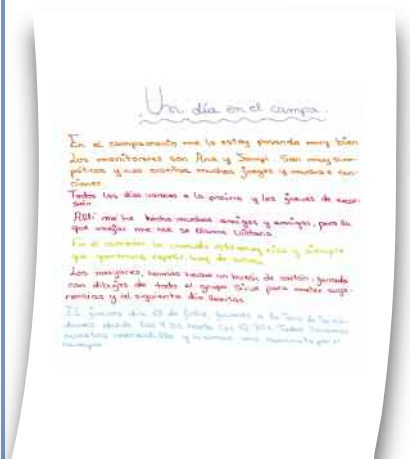 Un día en el campo.
En el campamento me lo estoy pasando muy bien
Los monitores son Ana y Sampi. Son muy sim-
páticos y nos enseñan muchos juegos y muchas can-
ciones.
Todos los días vamos a la piscina y los jueves de excur-
sión.
Allí me he hecho muchos amigos y amigas, pero la
que mejor me cae se llama
En el comedor la comida está muy rica y siempre
que queramos repetir, hay de sobra.
Los mayores, hemos hecho un buzón de cartón, forrado
con dibujos de todo el grupo. Sirve para meter suge-
rencias y al siguiente día leerlas.
El jueves día de julio, a la
desde las hasta las 10'30. Todos
nuestra y haremos una por el